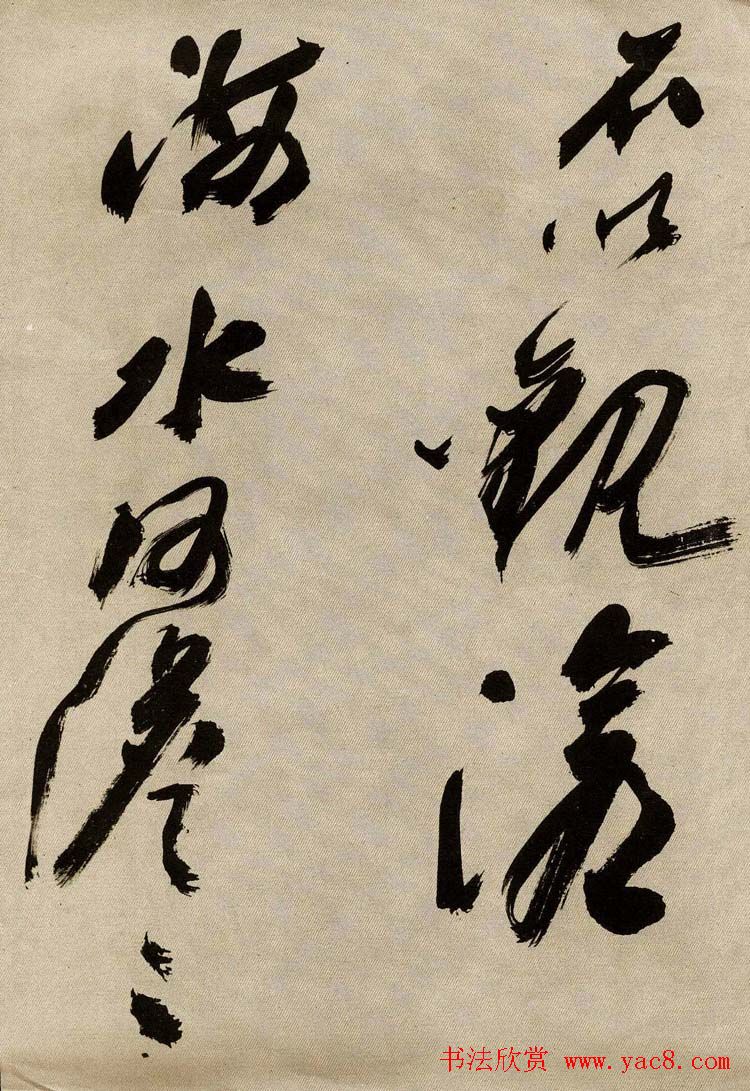 石以觀滄
海水何澹々
书法欣赏 www.yac8.com